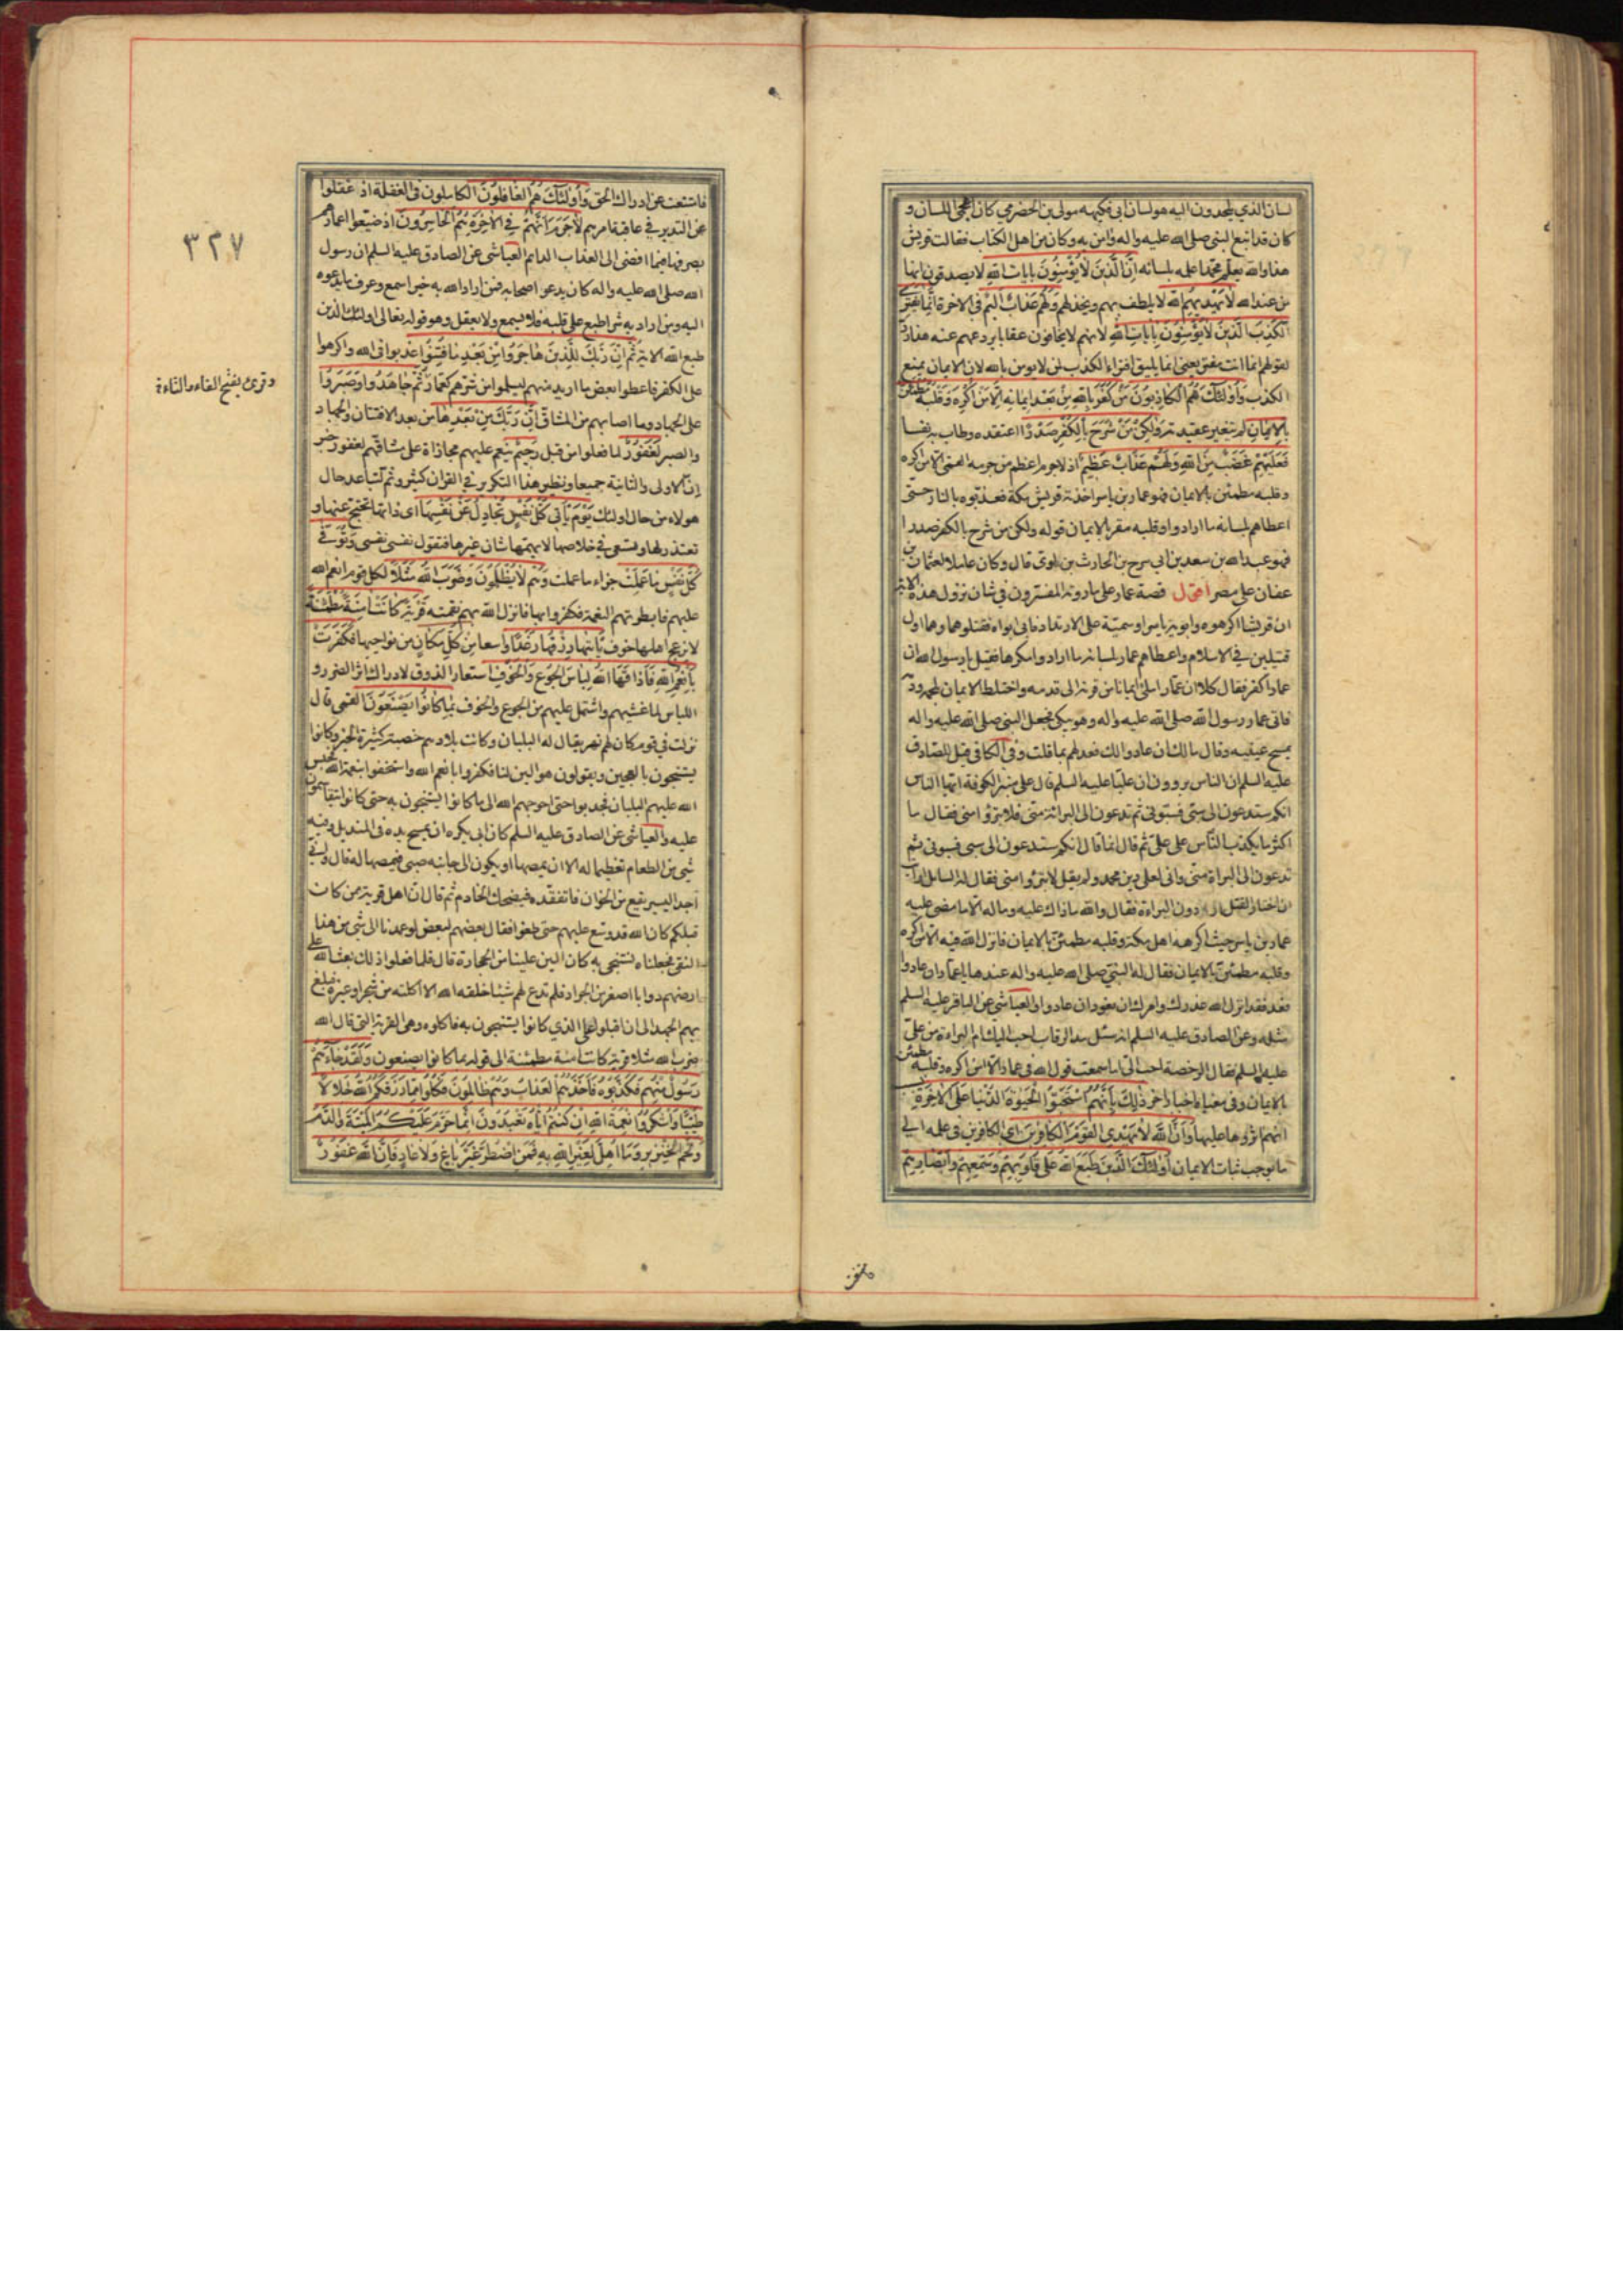 لسان الذي يلحدون اليه هو لسان ابي فكيهه مولى بن الحضرمي كان اعجمي اللسان و
كان قد اتبع النبي صلى الله عليه واله وامن به وكان من اهل الكتاب فقالت قريش
هذا والله يعلم محمدا علمه بلسانه اِنَّ الَّذينَ لا يُؤْمِنُونَ بِاياتِ اللهِ لا يصدقون انها
من عند الله لا يَهْديهِمُ اللهُ لا يلطف بهم ويخذلهم وَلَهُمْ عَذابٌ اَليمٌ في الاخرة اِنَّما يَفْتَرِي
الْكَذِبَ الَّذينَ لا يُؤْمِنُونَ بِاياتِ اللهِ لانهم لا يخافون عقابا يردعهم عنه هذا رد
لقولهم انما انت مفتر يعني انما يليق افتراء الكذب لمن لا يومن بالله لان الايمان يمنع
الكذب وَاُولئِكَ هُمُ الْكاذِبُونَ مَنْ كَفَرَ بِاللهِ مِنْ بَعْدِ ايمانِه اِلّا مَنْ اُكْرِهَ وَقَلْبُهُ مُطْمَئِنٌّ
بِالْايمانِ لم تتغير عقيدته وَلكِنْ مَنْ شَرَحَ بِالْكُفْرِ صَدْرًا اعتقده وطاب به نفسا
فَعَلَيْهِمْ غَضَبٌ مِنَ اللهِ وَلَهُمْ عَذابٌ عَظيمٌ اذ لا جرم اعظم من جرمه القمي الا من اكره
وقلبه مطمئن بالايمان فهو عمار بن ياسر اخذته قريش بمكة فعذبوه بالنار حتى
اعطاهم بلسانه ما ارادوا وقلبه مقر بالايمان قوله ولكن من شرح بالكفر صدرا
فهو عبد الله بن سعد بن ابي سرح بن الحارث بن لوي قال وكان عاملا لعثمان بن
عفان على مصر اقول قصة عمار على ما روته المفسرون في شان نزول هذه الاية
ان قريشا اكرهوه وابويه ياسر وسمية على الارتداد فابى ابواه فقتلوهما وهما اول
قتيلين في الاسلام واعطاهم عمار بلسانه ما ارادوا مكرها فقيل يا رسول الله ان
عمارا كفر فقال كلا ان عمار املئ ايمانا من قرنه الى قدمه واختلط الايمان بلحمه ودمه
فاتى عمار رسول الله صلى الله عليه واله وهو يبكي فجعل النبي صلى الله عليه واله
يمسح عينيه وقال مالك ان عادوا لك فعد لهم بما قلت وفي الكافي قيل للصادق
عليه السلم ان الناس يروون ان عليا عليه السلم قال على منبر الكوفة ايها الناس
انكم ستدعون الى سبي فسبوني ثم تدعون الى البرائة مني فلا تبرؤا مني فقال ما
اكثر ما يكذب الناس على علي ثم قال انما قال انكم ستدعون الى سبي فسبوني ثم
تدعون الى البراة مني واني لعلى دين محمد ولم يقل لا تبرؤا مني فقال له السائل ارايت
ان اختار القتل دون البراءة فقال والله ما ذاك عليه وما له الا ما مضى عليه
عمار بن ياسر حيث اكرهه اهل مكة وقلبه مطمئن بالايمان فانزل الله فيه الا من اكره
وقلبه مطمئن بالايمان فقال له النبي صلى الله عليه واله عندها يا عمار ان عادوا
فعد فقد انزل الله عذرك وامرك ان تعود ان عادوا والعياشي عن الباقر عليه السلم
مثله وعن الصادق عليه السلم انه سئل مد الرقاب احب اليك ام البراءة من علي
عليه السلم فقال الرخصة احب الي اما سمعت قول الله في عمار الا من اكره وقلبه مطمئن
بالايمان وفي معناه اخبار اخر ذلِكَ بِاَنَّهُمُ اسْتَحَبُّوا الْحَيوةَ الدُّنْيا عَلَى الْاخِرَةِ بسبب
انهم اثروها عليها وَاَنَّ اللهَ لا يَهْدِي الْقَوْمَ الْكافِرينَ اي الكافرين في علمه الى
ما يوجب ثبات الايمان اُولئِكَ الَّذينَ طَبَعَ اللهُ عَلى قُلُوبِهِمْ وَسَمْعِهِمْ وَاَبْصارِهِمْ
فامتنعت
فامتنعت عن ادراك الحق وَاُولئِكَ هُمُ الْغافِلُونَ الكاملون في الغفلة اذ غفلوا
عن التدبر في عاقبة امرهم لا جَرَمَ اَنَّهُمْ فِي الْاخِرَةِ هُمُ الْخاسِرُونَ اذ ضيعوا اعمارهم
بصرفها فيما افضى الى العذاب الدايم العياشي عن الصادق عليه السلم ان رسول
الله صلى الله عليه واله كان يدعو اصحابه فمن اراد الله به خيرا سمع وعرف ما يدعوه
اليه ومن اراد به شرا طبع على قلبه فلا يسمع ولا يعقل وهو قوله تعالى اولئك الذين
طبع الله الاية ثُمَّ اِنَّ رَبَّكَ لِلَّذينَ هاجَرُوا مِنْ بَعْدِ ما فُتِنُوا عذبوا في الله واكرهوا
على الكفر فاعطوا بعض ما اريد منهم ليسلموا من شرهم كعمار ثُمَّ جاهَدُوا وَصَبَرُوا
على الجهاد وما اصابهم من المشاق اِنَّ رَبَّكَ مِنْ بَعْدِها من بعد الافتتان والجهاد
والصبر لَغَفُورٌ لما فعلوا من قبل رَحيمٌ ينعم عليهم مجازاة على مشاقهم لغفور خبر
اِنّ الاولى والثانية جميعا ونظير هذا التكرير في القران كثير وثم لتباعد حال
هولاء من حال اولئك يَوْمَ يَأتي كُلُّ نَفْسٍ تُجادِلُ عَنْ نَفْسِها اي ذاتها تحتج عنها و
تعتذر لها ويسعى في خلاصها لا يهمها شان غيرها فتقول نفسي نفسي وَتُوَفّى
كُلُّ نَفْسٍ ما عَمِلَتْ جزاء ما عملت وَهُمْ لا يُظْلَمُونَ وَضَرَبَ اللهُ مَثَلًا لكل قوم انعم الله
عليهم فابطرتهم النعمة فكفروا بها فانزل الله بهم نقمته قَرْيَةً كانَتْ امِنَةً مُطْمَئِنَّةً
لا يزعج اهلها خوف يَأتيها رِزْقُها رَغَدًا واسعا مِنْ كُلِّ مَكانٍ من نواحيها فَكَفَرَتْ
بِاَنْعُمِ اللهِ فَاَذاقَهَا اللهُ لِباسَ الْجُوعِ وَالْخَوْفِ استعار الذوق لادراك اثر الضرر و
اللباس لما غشيهم واشتمل عليهم من الجوع والخوف بِما كانُوا يَصْنَعُونَ القمي قال
نزلت في قوم كان لهم نهر يقال له البليان وكانت بلادهم خصبة كثيرة الخير وكانوا
يستنجون بالعجين ويقولون هو الين لنا فكفروا بانعم الله واستخفوا بنعمة الله فحبس
الله عليهم البليان فجدبوا حتى احوجهم الله الى ما كانوا يستنجون به حتى كانوا يتقاسمون
عليه والعياشي عن الصادق عليه السلم كان ابي يكره ان يمسح يده في المنديل وفيه
شيئ من الطعام تعظيما له الا ان يمصها او يكون الى جانبه صبي فيمصها له قال واني
اجد اليسير يقع من الخوان فاتفقده فيضحك الخادم ثم قال ان اهل قرية ممن كان
قبلكم كان الله قد وسع عليهم حتى طغوا فقال بعضهم لبعض لو عمدنا الى شيئ من هذا
النقي فجعلناه نستنجي به كان الين علينا من الحجارة قال فلما فعلوا ذلك بعث الله على
ارضهم دوابا اصغر من الجراد فلم تدع لهم شيئا خلقه الله الا اكلته من شجر او غيره فبلغ
بهم الجهد الى ان اقبلوا على الذي كانوا يستنجون به فاكلوه وهي القرية التي قال الله
ضرب الله مثلا قرية كانت امنة مطمئنة الى قوله بما كانوا يصنعون وَلَقَدْ جاءَهُمْ
رَسُولٌ مِنْهُمْ فَكَذَّبُوهُ فَاَخَذَهُمُ الْعَذابُ وَهُمْ ظالِمُونَ فَكُلُوا مِمّا رَزَقَكُمُ اللهُ حَلالًا
طَيِّبًا وَاشْكُرُوا نِعْمَةَ اللهِ اِنْ كُنْتُمْ اِيّاهُ تَعْبُدُونَ اِنَّما حَرَّمَ عَلَيْكُمُ الْمَيْتَةَ وَالدَّمَ
وَلَحْمَ الْخِنْزيرِ وَما اُهِلَّ لِغَيْرِ اللهِ بِه فَمَنِ اضْطُرَّ غَيْرَ باغٍ وَلا عادٍ فَاِنَّ اللهَ غَفُورٌ
٣٢٧
وقرئ بفتح الفاء والتاء